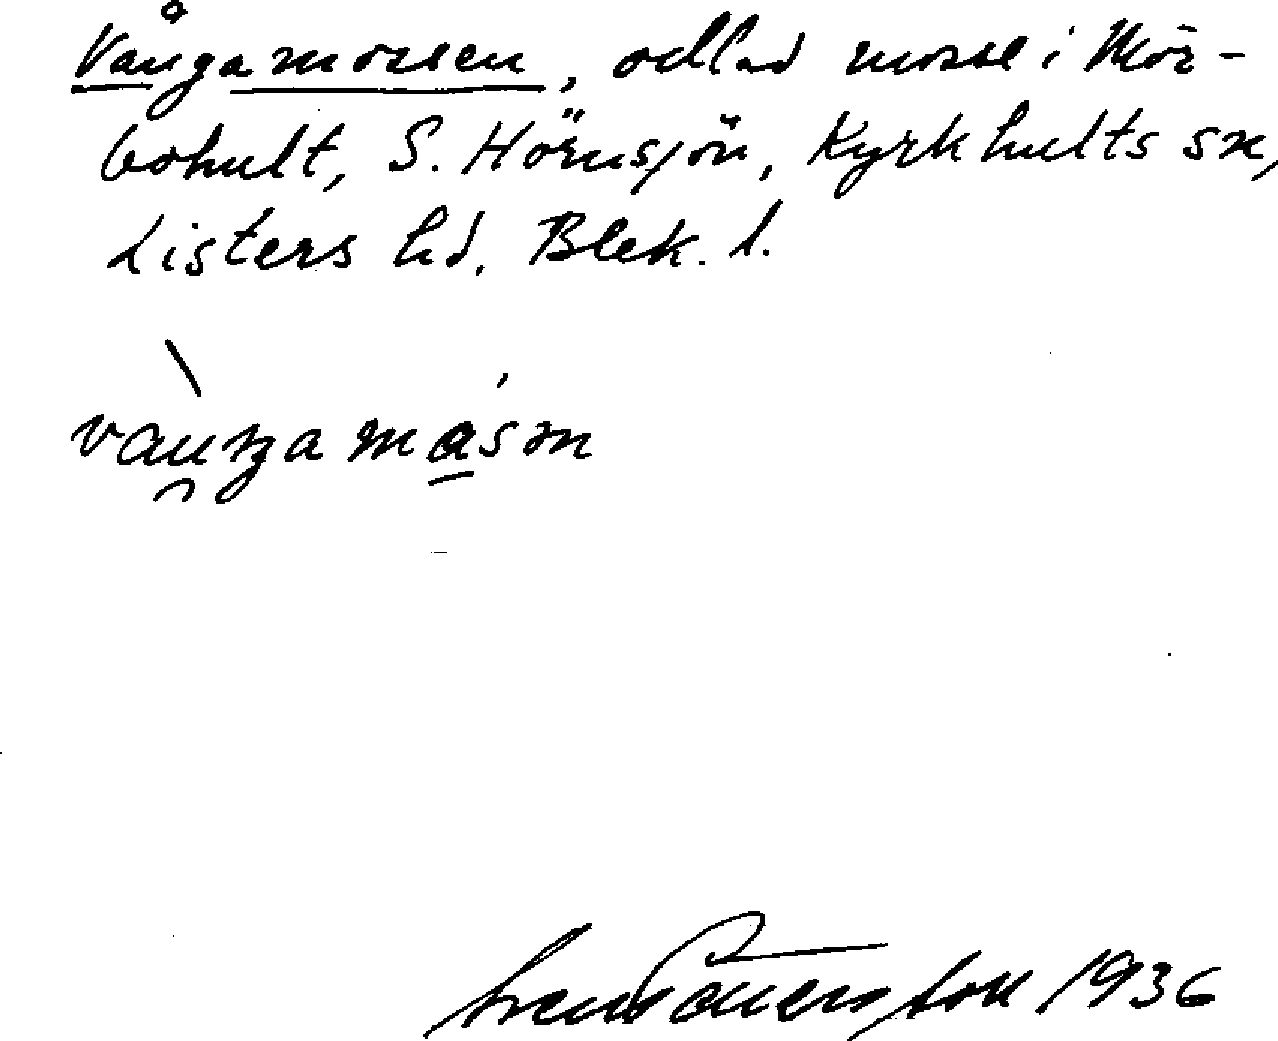 Vångamossen, odlad mosse i Mör-
bohult, S. Hörnsjön, Kyrkhults sn,
Listers hd. Blek. l.
1936